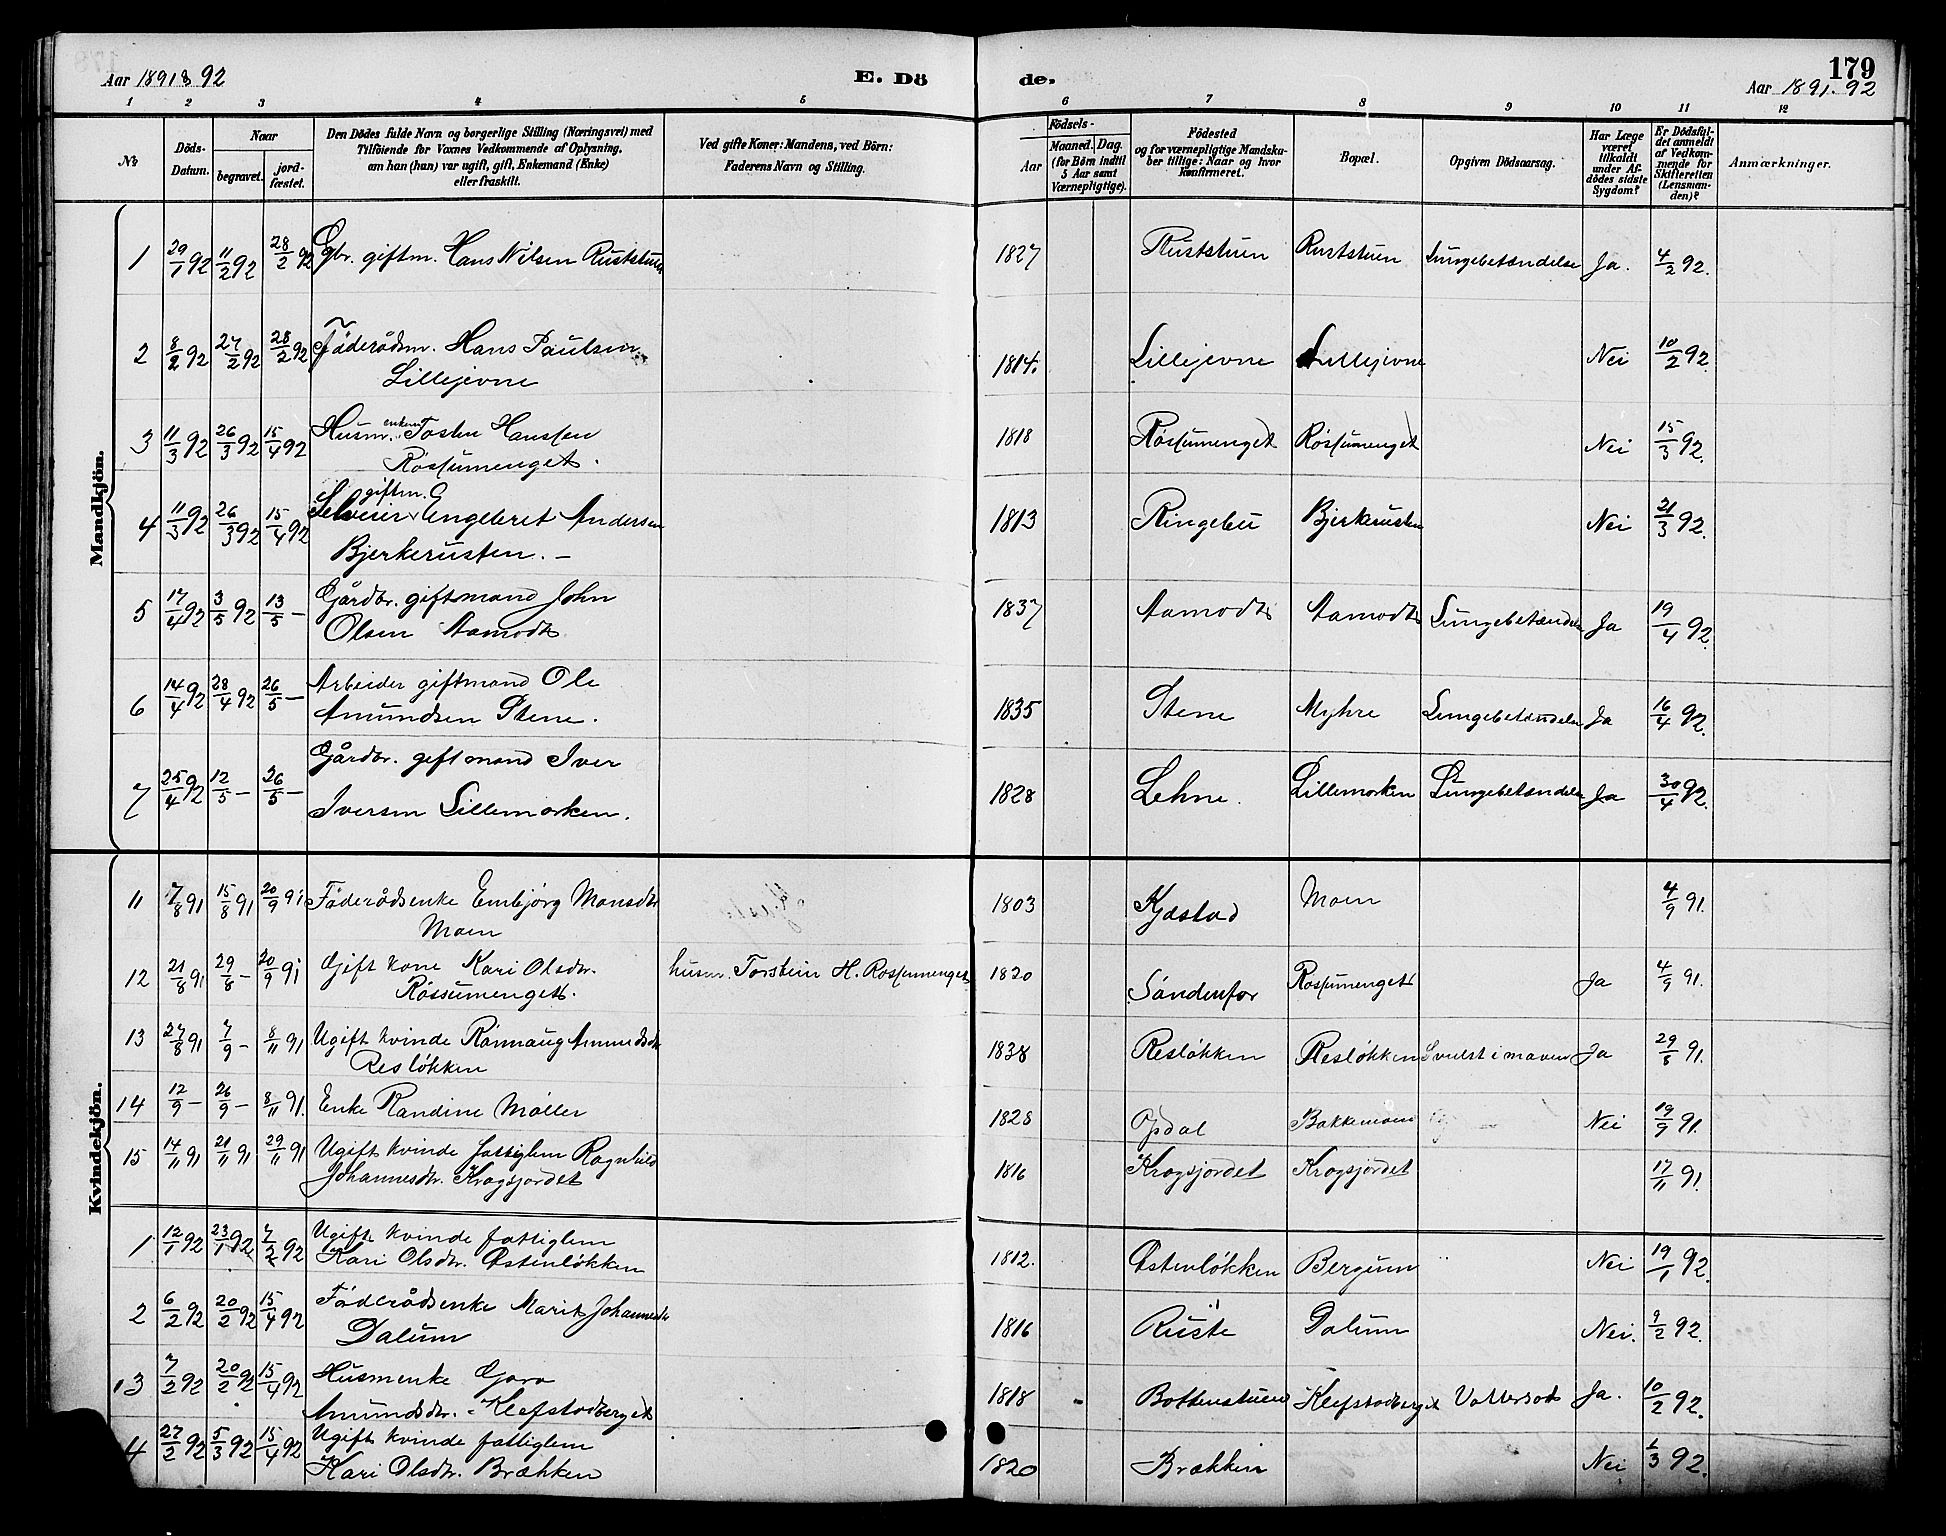 Aar 1891 & 92
E. Dö
de.
179
Aar 1891. 92
1 2 3 4 5 6 7 8 9 10 11 12
No
Döds-Datum.
Naar
begravet.
jord-fæstet.
Den Dödes fulde Navn og borgerlige Stilling (Næringsvei) med
Tilföiende for Voxnes Vedkommende af Oplysning,
om han (hun) var ugift, gift, Enkemand (Enke)
eller fraskilt.
Ved gifte Koner: Mandens, ved Börn:
Faderens Navn og Stilling.
Födsels-
Aar
Maaned. Dag.
(for Börn indtil
5 Aar samt
Værnepligtige).
Födested
og for værnepligtige Mandska-
ber tillige: Naar og hvor
Konfirmeret.
Bopæl.
Opgiven Dödsaarsag.
Har Læge
været
tilkaldt
under Af-
dödes sidste
Sygdom?
Er Dödsfal-
det anmeldt
af Vedkom-
mende for
Skifteretten
(Lensman-
den)?
Anmærkninger.
Mandkjön.
1 29/1 92 11/2 92 28/2 92 Gbr. giftm. Hans Nilsen Ruststuen 1827 Ruststuen Ruststuen Lungebetændelse Ja. 4/2 92.
2 8/2 92 27/2 92 28/2 92 Föderådsm. Hans Paulsen
Lillejevne 1814. Lillejevne Lillejevne Nei 10/2 92
3 11/3 92 26/3 92 15/4 92 Husm. enkem. Tosten Hansten
Rössumenget. 1818 Rössumenget Rössumenget Nei 15/3 92.
4 11/3 92 26/3 92 15/4 92 Selveier giftm. Engebret Andersen
Bjerkerusten. 1813 Ringebu Bjerkerusten Nei 21/3 92.
5 17/4 92 3/5 92 13/5 – Gårdbr. giftmand John
Olsen Aamodt 1837 Aamodt Aamodt Lungebetændelse Ja 19/4 92.
6 14/4 92 28/4 92 26/5 – Arbeider giftmand Ole
Amundsen Stene. 1835 Stene Myhre Lungebetændelse Ja 16/4 92.
7 25/4 92 12/5 – 26/5 – Gårdbr. giftmand Iver
Iversen Lillemorken. 1828 Lehne. Lillemorken Lungebetændelse Ja 30/4 92.
Kvindekjön.
11 7/8 91 15/8 91 20/9 91 Föderådsenke Embjørg Monsdtr
Moen 1803 Kjæstad Moen 4/9 91.
12 21/8 91 29/8 – 20/9 91 Gift kone Kari Olsdtr.
Røssumenget. husm. Torstein H. Rossumenget 1820 Söndenfor Rossumenget Ja 4/9 91.
13 27/8 91 7/9 – 8/11 91 Ugift kvinde Rönnaug Amundsdtr
Resløkken 1838 Resløkken Resløkken Svulst i maven Ja 29/8 91.
14 12/9 – 26/9 – 8/11 91. Enke Randine Møller 1828 Opdal Bakkemoen Nei 19/9 91.
15 14/11 91 21/11 91 29/11 91 Ugift kvinde fattiglem Ragnhild
Johannesdtr. Krogsjordet 1816 Krogsjordet Krogsjordet 17/11 91.
1 12/1 92 23/1 92 7/2 92 Ugift kvinde fattiglem
Kari Olsdtr. Østenløkken 1812. Østenløkken Bergum Nei 19/1 92.
2 6/2 92 20/2 92 15/4 92 Föderådsenke Marit Johannesdtr
Dalum 1816 Ruste Dalum Nei. 9/2 92.
3 7/2 92 20/2 92 15/4 92 Husmenke Goro
Amundsdtr. Klefstadberget 1818 Bottenstuen Klefstadberget Vattersot Ja. 10/2 92.
4 27/2 92 5/3 92 15/4 92 Ugift kvinde fattiglem
Kari Olsdtr. Brækken 1820 Brækken Nei 1/3 92.